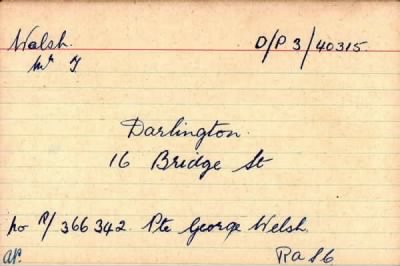 Walsh. D/P 3/40315.
Mr J
Darlington.
16 Bridge St
No R/366342. Pte George Welsh.
AP. Ra S6